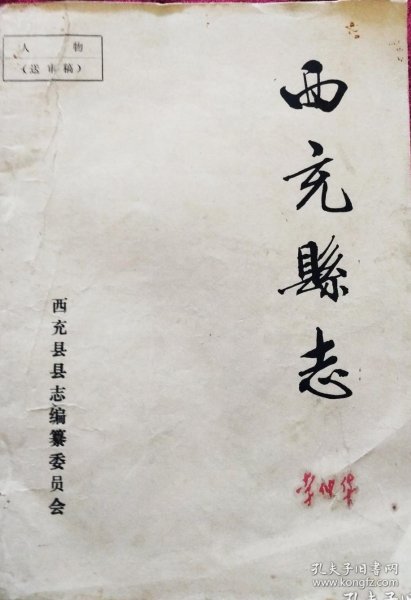 人物
（送审稿）
西充縣志
西充县县志编纂委员会
孔夫子旧书网